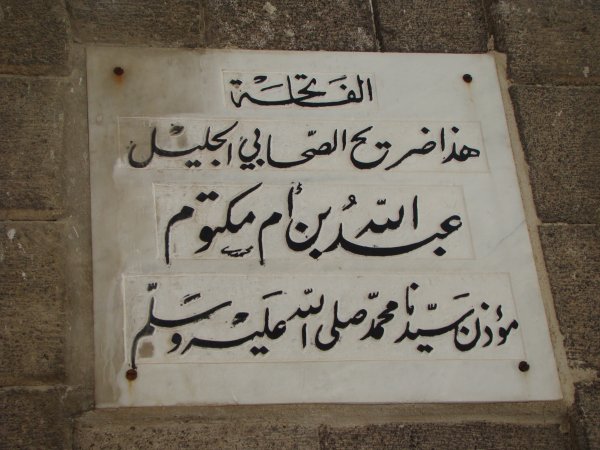 الفاتحة
هذا ضريح الصّحابي الجليل
عبد اللّه بن أم مكتوم
مؤذن سيّدنا محمّد صلى اللّه عليه وسلّم